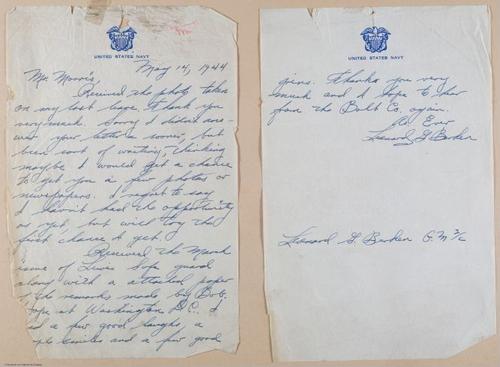 UNITED STATES NAVY
May 14, 1944
Mr. Morris,
Received the photo taken
on my last leave. Thank you
very much. Sorry I didn't ans-
wer your letter sooner, but
been sort of waiting, thinking
maybe I would get a chance
to get you a few photos or
newspapers. I regret to say
I haven't had the opportunity
as yet, but will try the
first chance I get.
Received the March
issue of
along with a attached paper
the remarks made by Bob
at Washington D.C. I
a few good laughs, a
smiles and a few good
UNITED STATES NAVY
grins. Thanks you very
much and I hope to hear
from the Bolt Co. again.
As Ever
Leonard G. Barker
Leonard G. Barker G.M 3/c